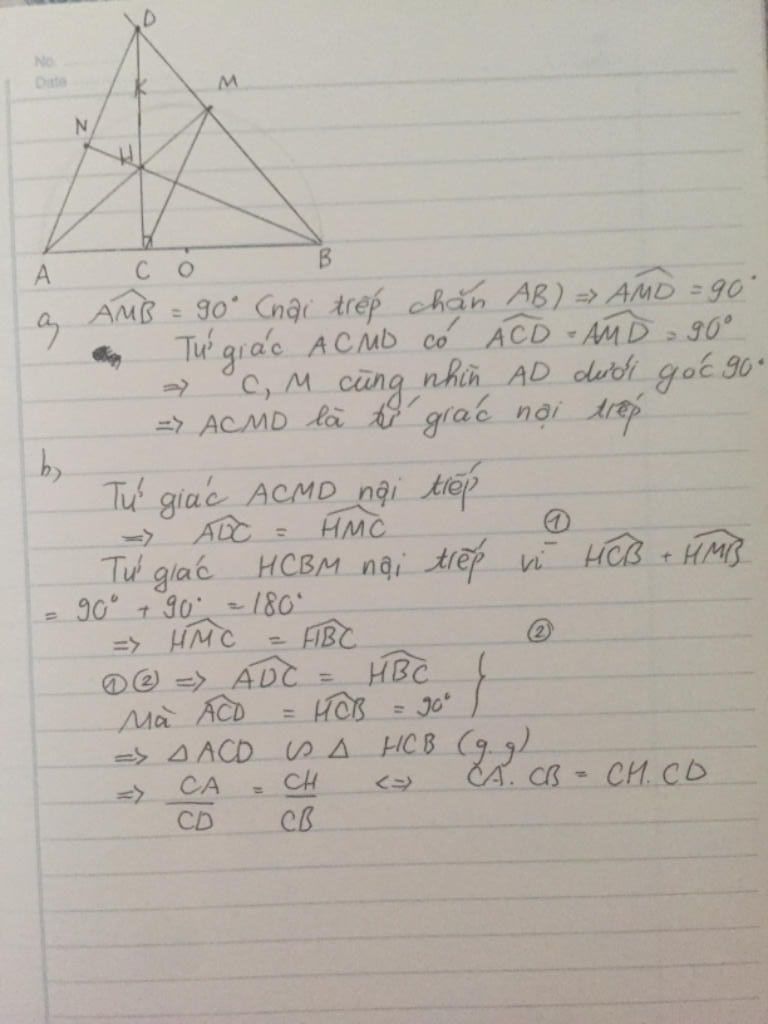 No.
Date
D
K
M
N
H
A
C
O
B
a, AM̂B = 90° (nội tiếp chắn AB) => AM̂D = 90°
Tứ giác ACMD có AĈD = AM̂D = 90°
=> C, M cùng nhìn AD dưới góc 90°
=> ACMD là tứ giác nội tiếp
b,
Tứ giác ACMD nội tiếp
=> AD̂C = HM̂C ①
Tứ giác HCBM nội tiếp vì HĈB + HM̂B
= 90° + 90° = 180°
=> HM̂C = HB̂C ②
①② => AD̂C = HB̂C }
Mà AĈD = HĈB = 90°
=> △ACD ∽ △HCB (g.g)
=> CA/CD = CH/CB <=> CA.CB = CH.CD